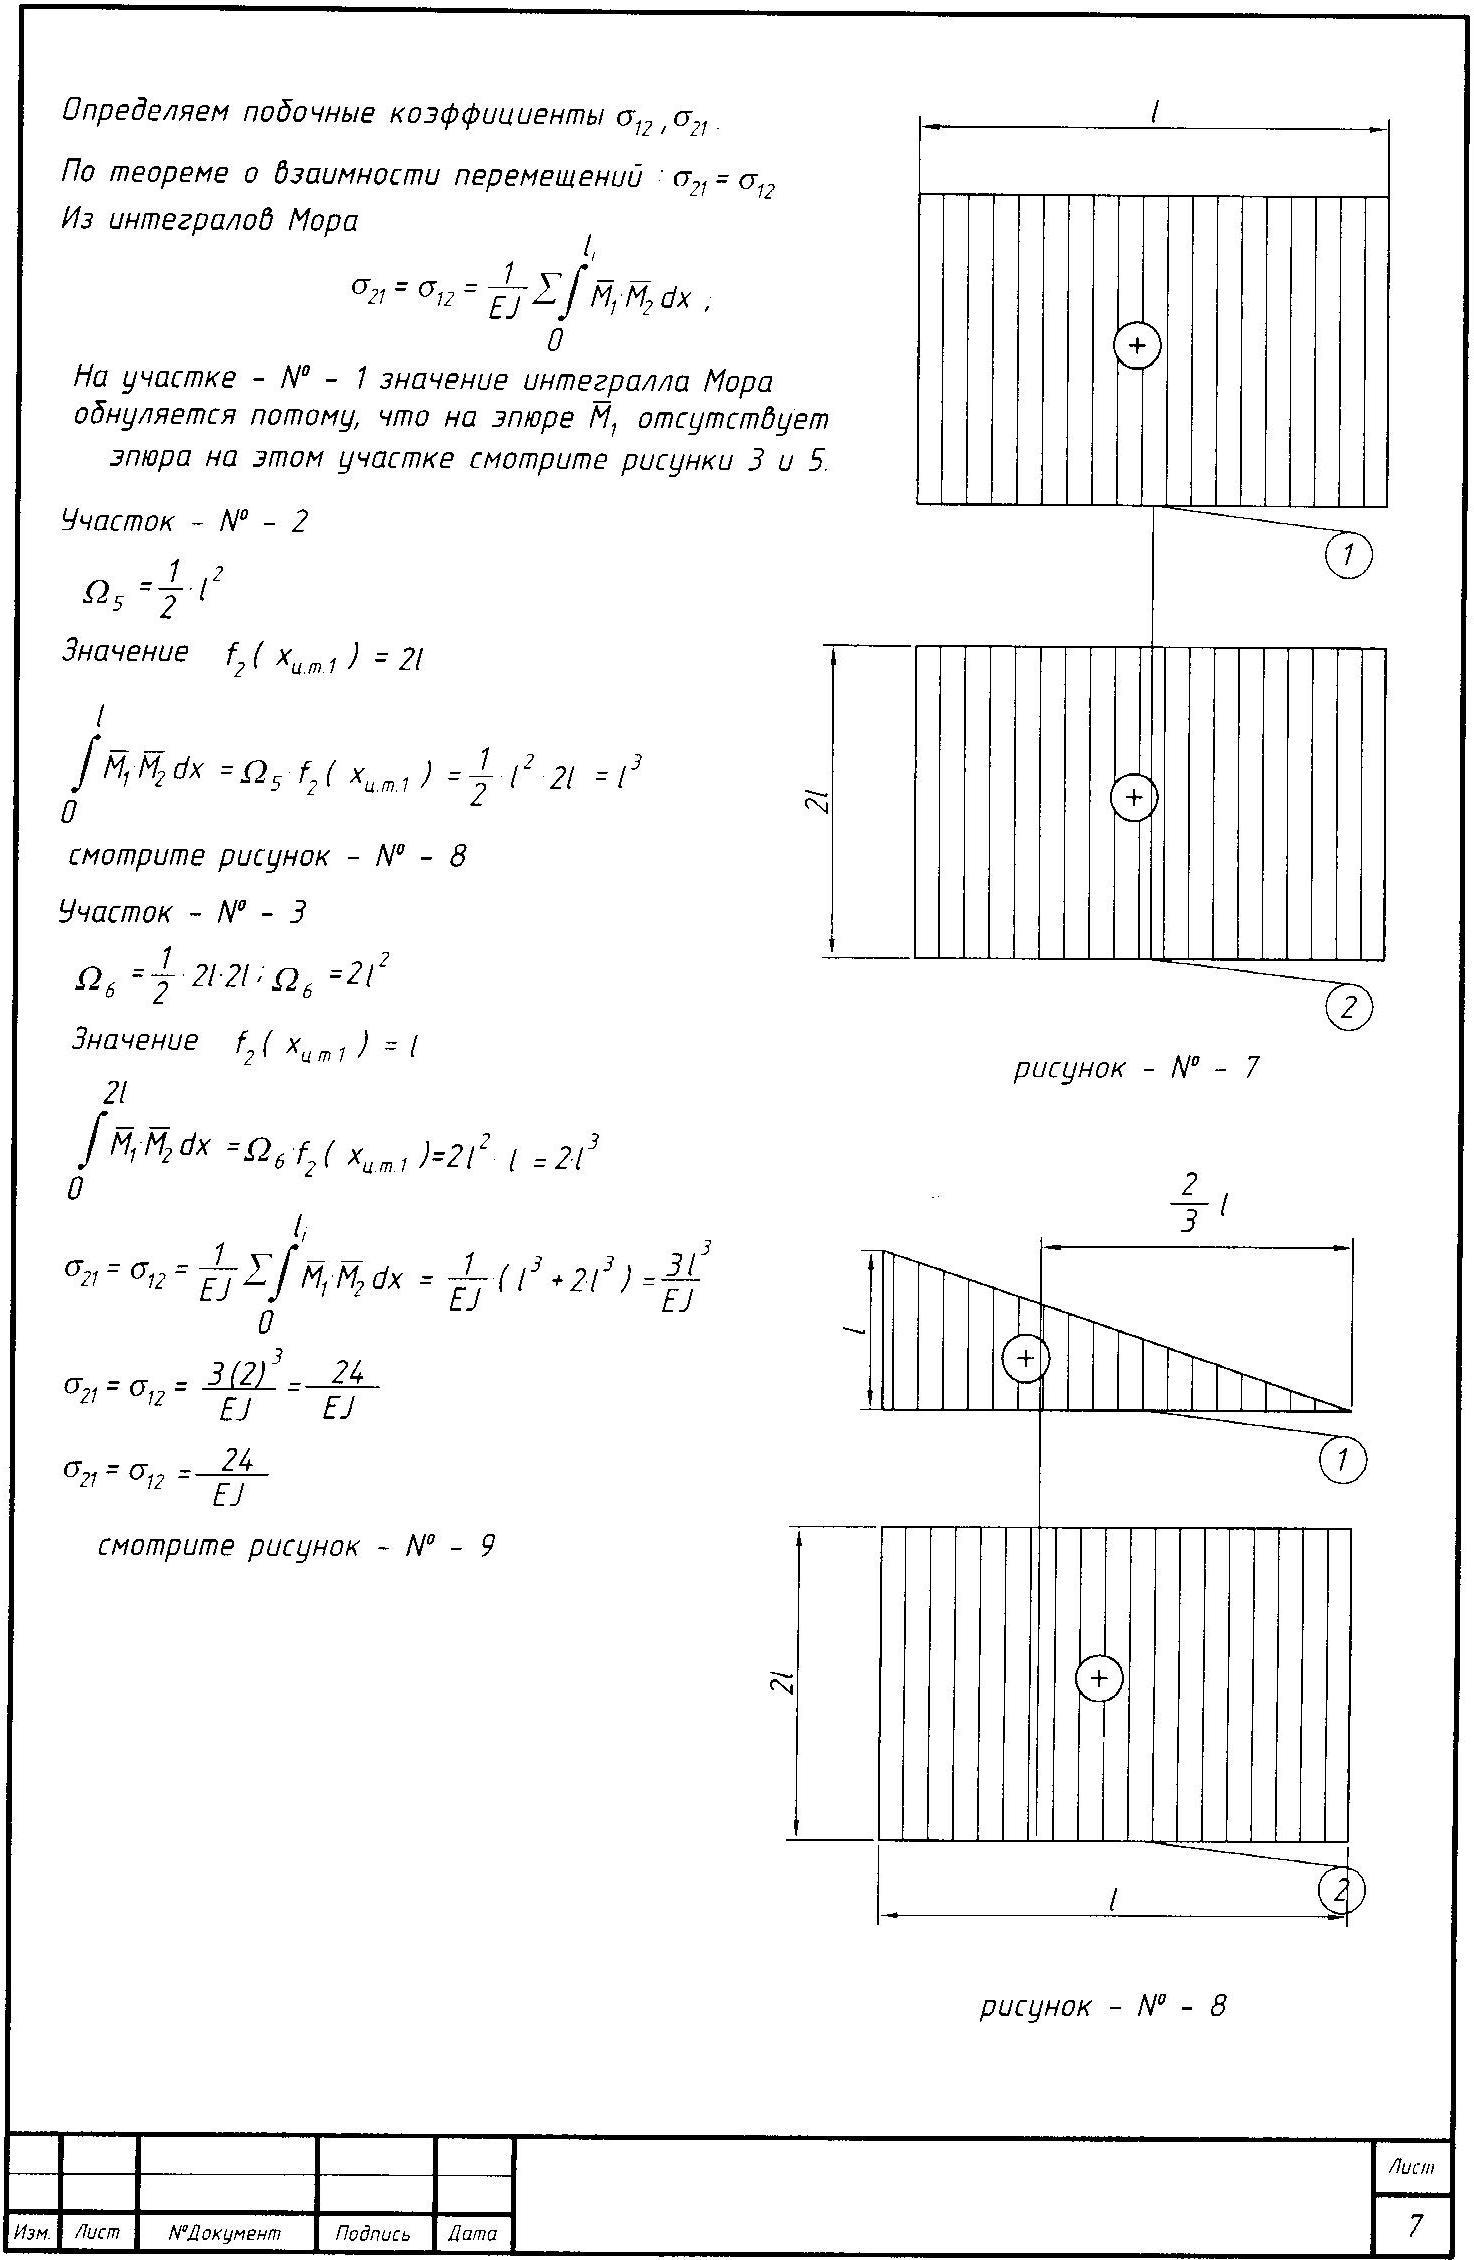 Определяем побочные коэффициенты σ₁₂, σ₂₁.
По теореме о взаимности перемещений : σ₂₁ = σ₁₂
Из интегралов Мора
σ₂₁ = σ₁₂ = 1/EJ Σ ∫₀^{lᵢ} M̅₁·M̅₂ dx ;
На участке - № - 1 значение интегралла Мора
обнуляется потому, что на эпюре M̅₁ отсутствует
эпюра на этом участке смотрите рисунки 3 и 5.
Участок - № - 2
Ω₅ = 1/2 · l²
Значение f₂( x_{ц.т.1} ) = 2l
∫₀^{l} M̅₁·M̅₂ dx = Ω₅·f₂( x_{ц.т.1} ) = 1/2 · l² · 2l = l³
смотрите рисунок - № - 8
Участок - № - 3
Ω₆ = 1/2 · 2l·2l ; Ω₆ = 2l²
Значение f₂( x_{ц.т.1} ) = l
∫₀^{2l} M̅₁·M̅₂ dx = Ω₆·f₂( x_{ц.т.1} ) = 2l² · l = 2·l³
σ₂₁ = σ₁₂ = 1/EJ Σ ∫₀^{lᵢ} M̅₁·M̅₂ dx = 1/EJ ( l³ + 2·l³ ) = 3l³/EJ
σ₂₁ = σ₁₂ = 3(2)³/EJ = 24/EJ
σ₂₁ = σ₁₂ = 24/EJ
смотрите рисунок - № - 9
l
+
1
2l
+
2
рисунок - № - 7
2/3 l
l
+
1
2l
+
2
l
рисунок - № - 8
Изм. Лист №Документ Подпись Дата
Лист
7